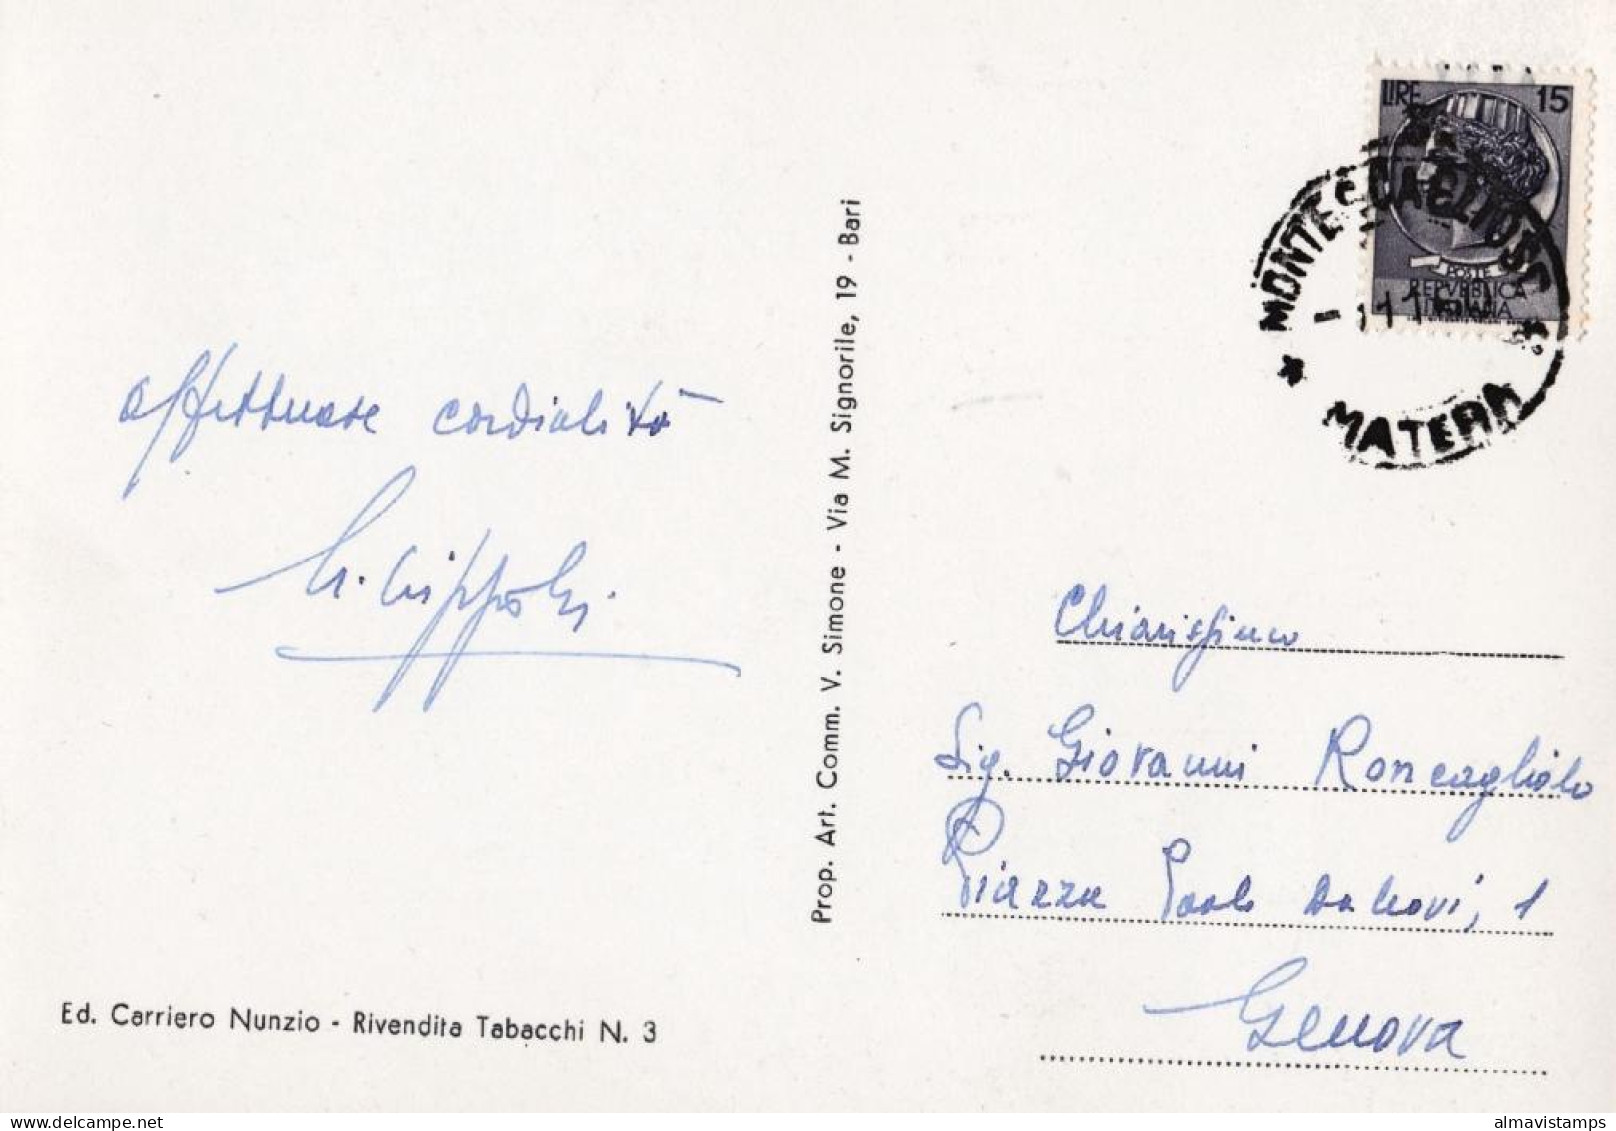 affettuose cordialità
Ed. Carriero Nunzio - Rivendita Tabacchi N. 3
Prop. Art. Comm. V. Simone - Via M. Signorile, 19 - Bari
LIRE 15
POSTE
REPVBBLICA
ITALIANA
MONTESCAGLIOSO
* *
MATERA
Chiarissimo
Sig. Giovanni Roncagliolo
Piazza Paolo Da Novi, 1
Genova
almavistamps